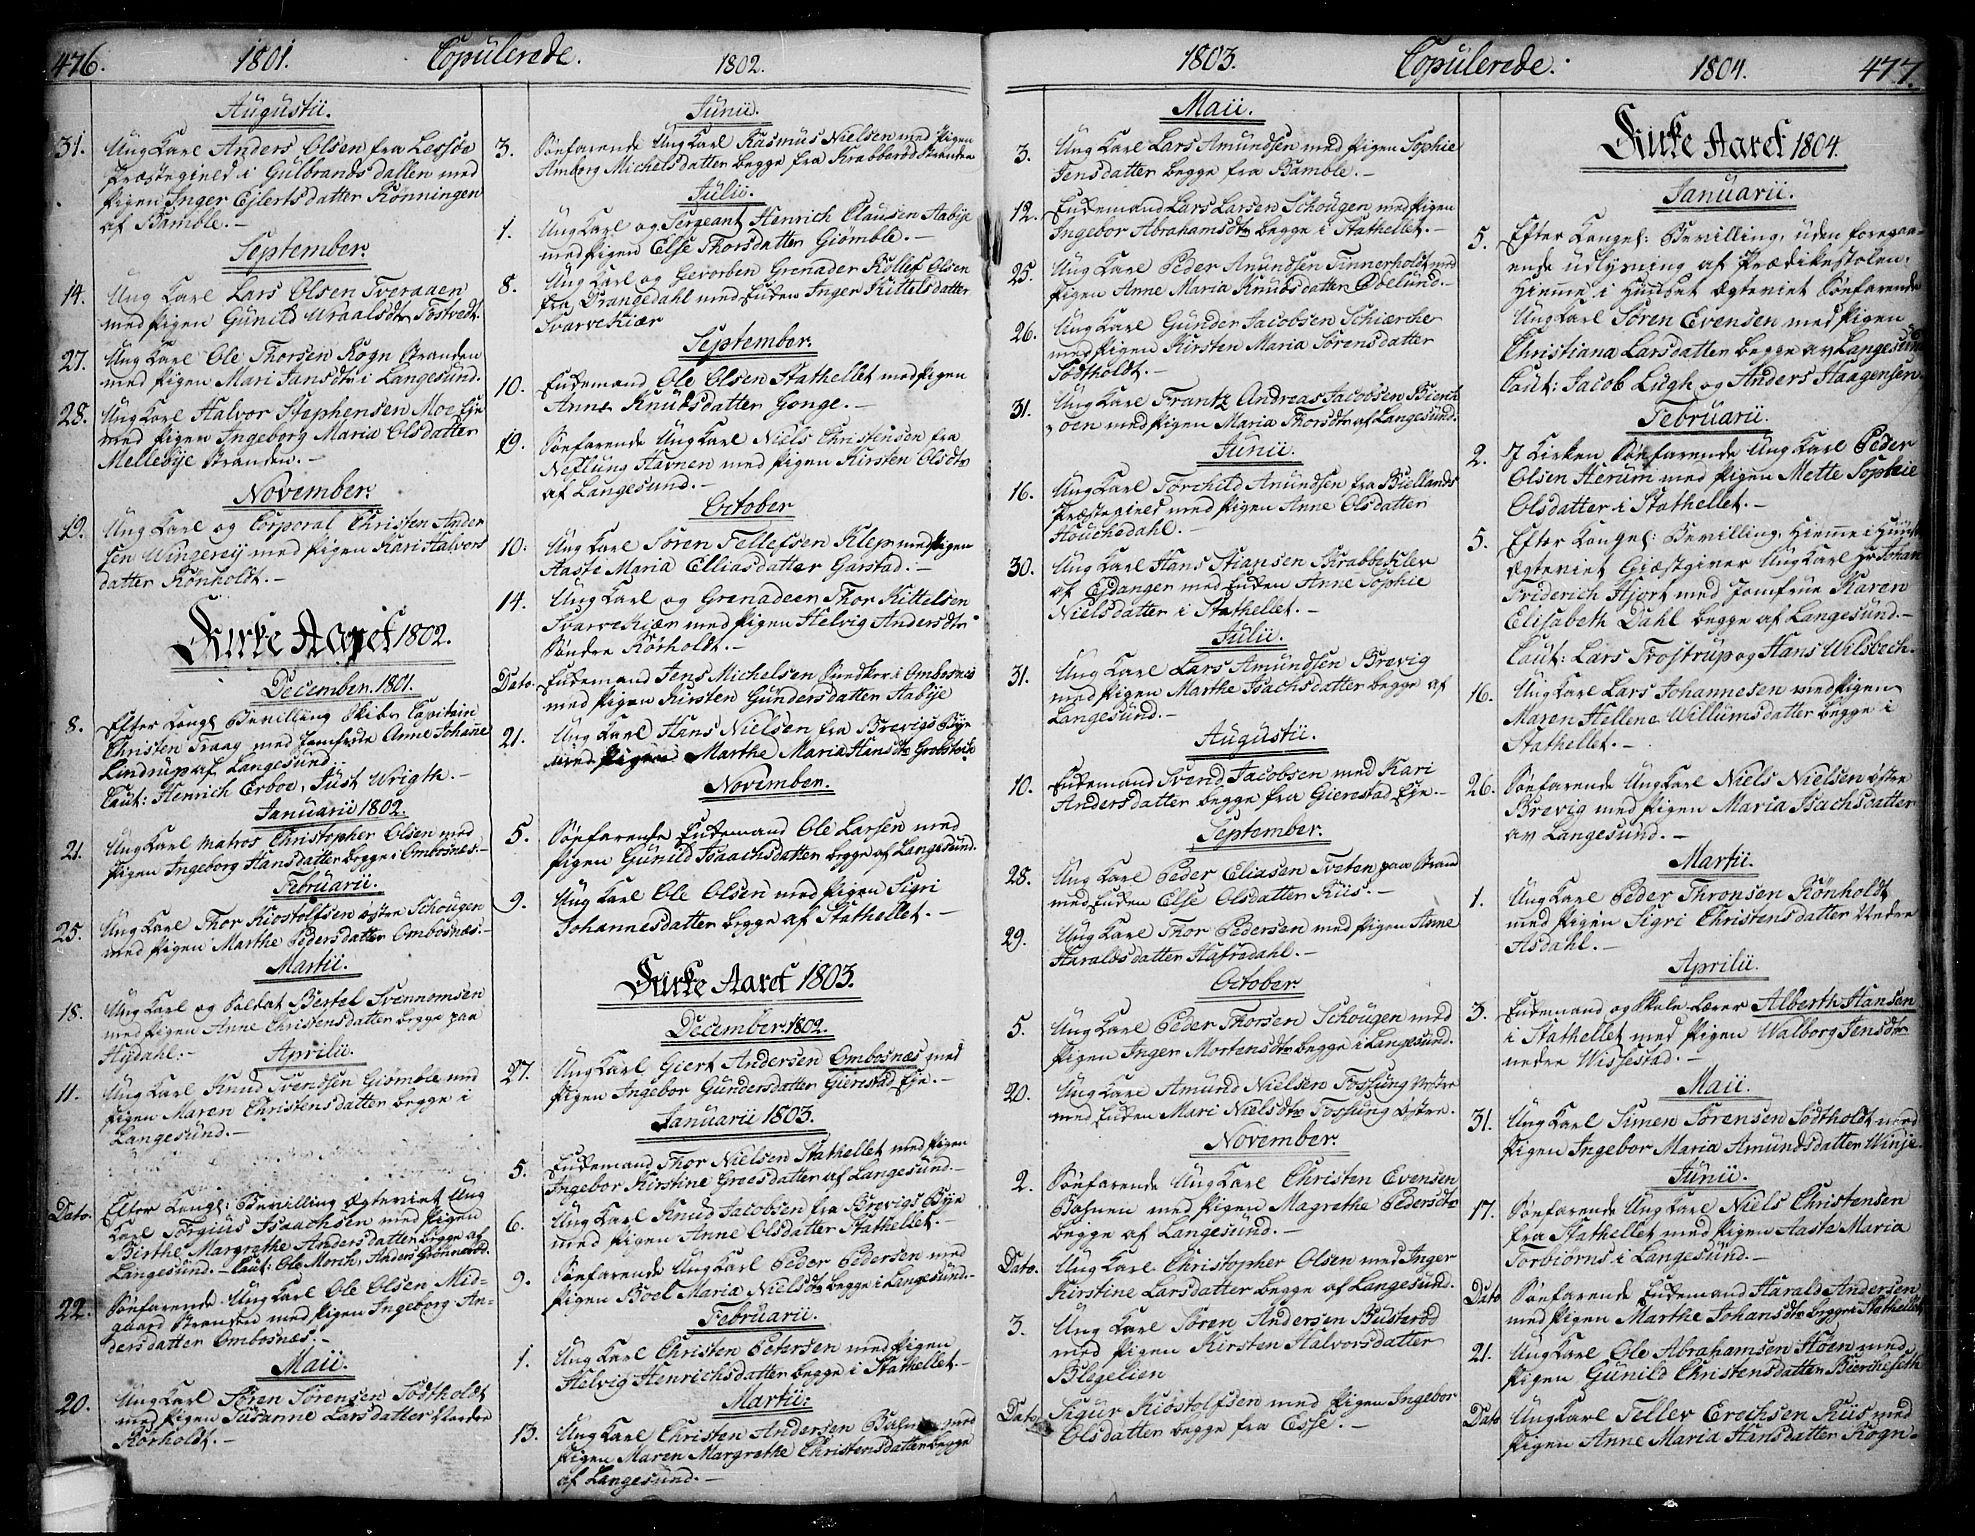 476. 1801. Copulerede. 1802.
Augustii.
31. Ung Karl Anders Olsen fra Lessøe
Præstegield i Gulbrandsdallen med
Pigen Inger Ejlertsdatter Rønningen
af Bamble.-
September.
14. Ung Karl Lars Olsen Tveraaen
med Pigen Gunild Wraalsdtr Tostvedt.
27. Ung Karl Ole Thorsen Rogn Stranden
med Pigen Mari Jansdtr i Langesund.
28. Ung Karl Halvor Stephensen Moe Eje
med Pigen Ingeborg Maria Olsdatter
Mellebye Stranden.-
November.
19. Ung Karl og Corporal Christen Ander
sen Wingereij med Pigen Kari Halvors
datter Rønholdt.-
Kirke Aaret 1802.
December 1801.
8. Efter Kongl. Bevilling Skibs Capitain
Christen Traag med Jomfrue Anne Johanne
Lindrup af Langesund.
Caut: Henrich Erboe, Just Wrigth.-
Januarii 1802.
21. Ung Karl Matros Christopher Olsen med
Pigen Ingeborg Hansdatter begge i Ombosnæs.-
Februarii.
25. Ung Karl Thor Kiostolfsen østre Schougen
med Pigen Marthe Pedersdatter Ombosnæs.-
Martii.
18. Ung Karl og Soldat Bertel Svennomsen
med Pigen Anne Christensdatter begge paa
Hydahl.-
Aprilii.
11. Ung Karl Knud Svendsen Giømble med
Pigen Maren Christensdatter begge i
Langesund.-
Dato. Efter Kongl: Bevilling Ægteviet Ung
Karl Torgius Isaachsen med Pigen
Birthe Margrethe Andersdatter begge af
Langesund.- Caut: Ole Morch, Anders Grønnerød.
22. Søefarende Ung Karl Ole Olsen Mid-
gaard Stranden med Pigen Ingeborg An-
dersdatter Ombosnæs.-
Maii.
20. Ung Karl Søren Sørensen Södtholdt
med Pigen Susanne Larsdatter Nordre
Rørholdt.-
Junii.
3. Søefarende Ung Karl Rasmus Nielsen med Pigen
Amborg Michelsdatter begge fra Krabberød Stranden
Julii.
1. Ung Karl og Sergeant Henrich Clausen Aabye
med Pigen Else Thorsdatter Giømble.-
8. Ung Karl og Gevorben Grenader Kollef Olsen
fra Drangedahl med Enken Inger Kittelsdatter
Svarvekiær
September.
10. Enkemand Ole Olsen Stathellet med Pigen
Anne Knudsdatter Gonge.-
19. Søefarende Ung Karl Niels Christensen fra
Neflung Havnen med Pigen Kirsten Olsdtr
af Langesund.-
October
10. Ung Karl Søren Tellefsen Klep med Pigen
Aaste Maria Elliasdatter Garstad.-
14. Ung Karl og Grenadeer Thor Kittelsen
Svarvekiær med Pigen Helvig Andersdtr
Søndre Rørholdt.-
Dato. Enkemand Jens Michelsen Snedker i Ombosnes
med Pigen Kirsten Gundersdatter Aabye
21. Ung Karl Hans Nielsen fra Brevigs Bye
med Pigen Marthe Maria Hansdtr Grobstok
November.
5. Søefarende Enkemand Ole Larsen med
Pigen Gunild Isaachsdatter begge af Langesund.
9. Ung Karl Ole Olsen med Pigen Sigri
Johannesdatter begge af Stathellet.-
Kirke Aaret 1803.
December 1802.
27. Ung Karl Giert Andersen Ombosnæs med
Pigen Ingebor Gundersdatter Gierestad Eje.-
Januarii 1803.
5. Enkemand Thor Nielsen Stathellet med Pigen
Ingebor Kirstine Greesdatter af Langesund.-
6. Ung Karl Knud Jacobsen fra Brevigs Bye
med Pigen Anne Olsdatter Stathellet.-
9. Søefarende Ung Karl Peder Pedersen med
Pigen Boel Maria Nielsdtr begge i Langesund.-
Februarii.
1. Ung Karl Christen Petersen med Pigen
Helvig Henrichsdatter begge i Stathellet.-
Martii.
13. Ung Karl Christen Andersen med
Pigen Maren Margrethe Christensdatter begge
af Langesund.-
1803. Copulerede. 1804. 477.
Maii.
3. Ung Karl Lars Amundsen med Pigen Sophie
Jensdatter begge fra Bamble.-
12. Enkemand Lars Larsen Schougen med Pigen
Ingebor Abrahamsdtr begge i Stathellet.-
25. Ung Karl Peder Amundsen Tinnerholdt med
Pigen Anne Maria Knudsdatter Oeelund.-
26. Ung Karl Gunder Jacobsen Schierche
med Pigen Kirsten Maria Sørensdatter
Södtholdt.-
31. Ung Karl Frantz Andreas Jacobsen Bierch
oen med Pigen Maria Thorsdtr af Langesund.
Junii.
16. Ung Karl Torchild Amundsen fra Biellands
Præstegield med Pigen Anne Olsdatter
Houchedahl.-
30. Ung Karl Hans Stiansen Krabbekler
af Ejdanger med Enken Anne Sophie
Nielsdatter i Stathellet.-
Julii.
31. Ung Karl Lars Amundsen Brevig
med Pigen Marthe Isachsdatter begge af
Langesund.-
Augustii.
10. Enkemand Svend Jacobsen med Kari
Andersdatter begge fra Gierestad Eje.-
September.
28. Ung Karl Peder Eliasen Tveten paa Strand
med Enken Else Olsdatter Riis.-
29. Ung Karl Thor Pedersen med Pigen Anne
Haraldsdatter Hafredahl.-
October
5. Ung Karl Peder Thorsen Schougen med
Pigen Inger Mortensdtr begge i Langesund.
20. Ung Karl Amund Nielsen Fossung Vestre
med Enken Mari Nielsdtr Fossung østre.
November.
2. Søefarende Ung Karl Christen Evensen
Bahnen med Pigen Magrethe Pedersdtr
begge af Langesund.-
Dato. Ung Karl Christopher Olsen med Inger
Kirstine Larsdatter begge af Langesund.
3. Ung Karl Søren Andersen Busterød
med Pigen Kirsten Halvorsdatter
Blegelien
Dato. Sigur Kiøstolfsen med Pigen Ingebor
Olsdatter begge fra Esse.-
Kirke Aaret 1804.
Januarii.
5. Efter Kongel: Bevilling, uden foregaa-
ende udlysning af Prædikestolen,
hjemme i Huuset Ægteviet Søefarende
Ung Karl Søren Evensen med Pigen
Christiana Larsdatter begge av Langesund
Caut: Jacob Lugh og Anders Haagensen.
Februarii.
2. I Kirken Søefarende Ung Karl Peder
Olsen Herum med Pigen Mette Sophie
Olsdatter i Stathellet.-
5. Efter Kongel: Bevilling, hiemme i Huuset
Ægteviet Giæstgiver Ung Karl Hr Johan
Friderich Hjort med Jomfrue Karen
Elisabeth Dahl begge af Langesund.-
Caut: Lars Trostrup og Hans Wilsbech.
16. Ung Karl Lars Johannesen med Pigen
Maren Hellene Willumsdatter begge i
Stathellet.-
26. Søefarende Ung Karl Niels Nielsen østre
Brevig med Pigen Maria Isachsdatter
av Langesund.-
Martii.
1. Ung Karl Peder Thronsen Rønholdt
med Pigen Sigri Christensdatter Nedre
Asdahl.-
Aprilii.
3. Enkemand og Skole Lærer Alberth Hansen
i Stathellet med Pigen Walborg Jensdtr
nedre Wissestad.-
Maii.
31. Ung Karl Simen Sørensen Södtholdt med
Pigen Ingebor Maria Amundsdatter Winje.
Junii.
17. Søefarende Ung Karl Niels Christensen
fra Stathellet med Pigen Aaste Maria
Torbiørns i Langesund.-
Dato Søefarende Enkemand Harald Andersen
med Pigen Marthe Johansdtr begge i Stathellet
21. Ung Karl Ole Abrahamsen Høen med
Pigen Gunild Christensdatter Biercheseth
Dato Ung Karl Tellef Erechsen Riis med
Pigen Anne Maria Hansdatter Rogn-